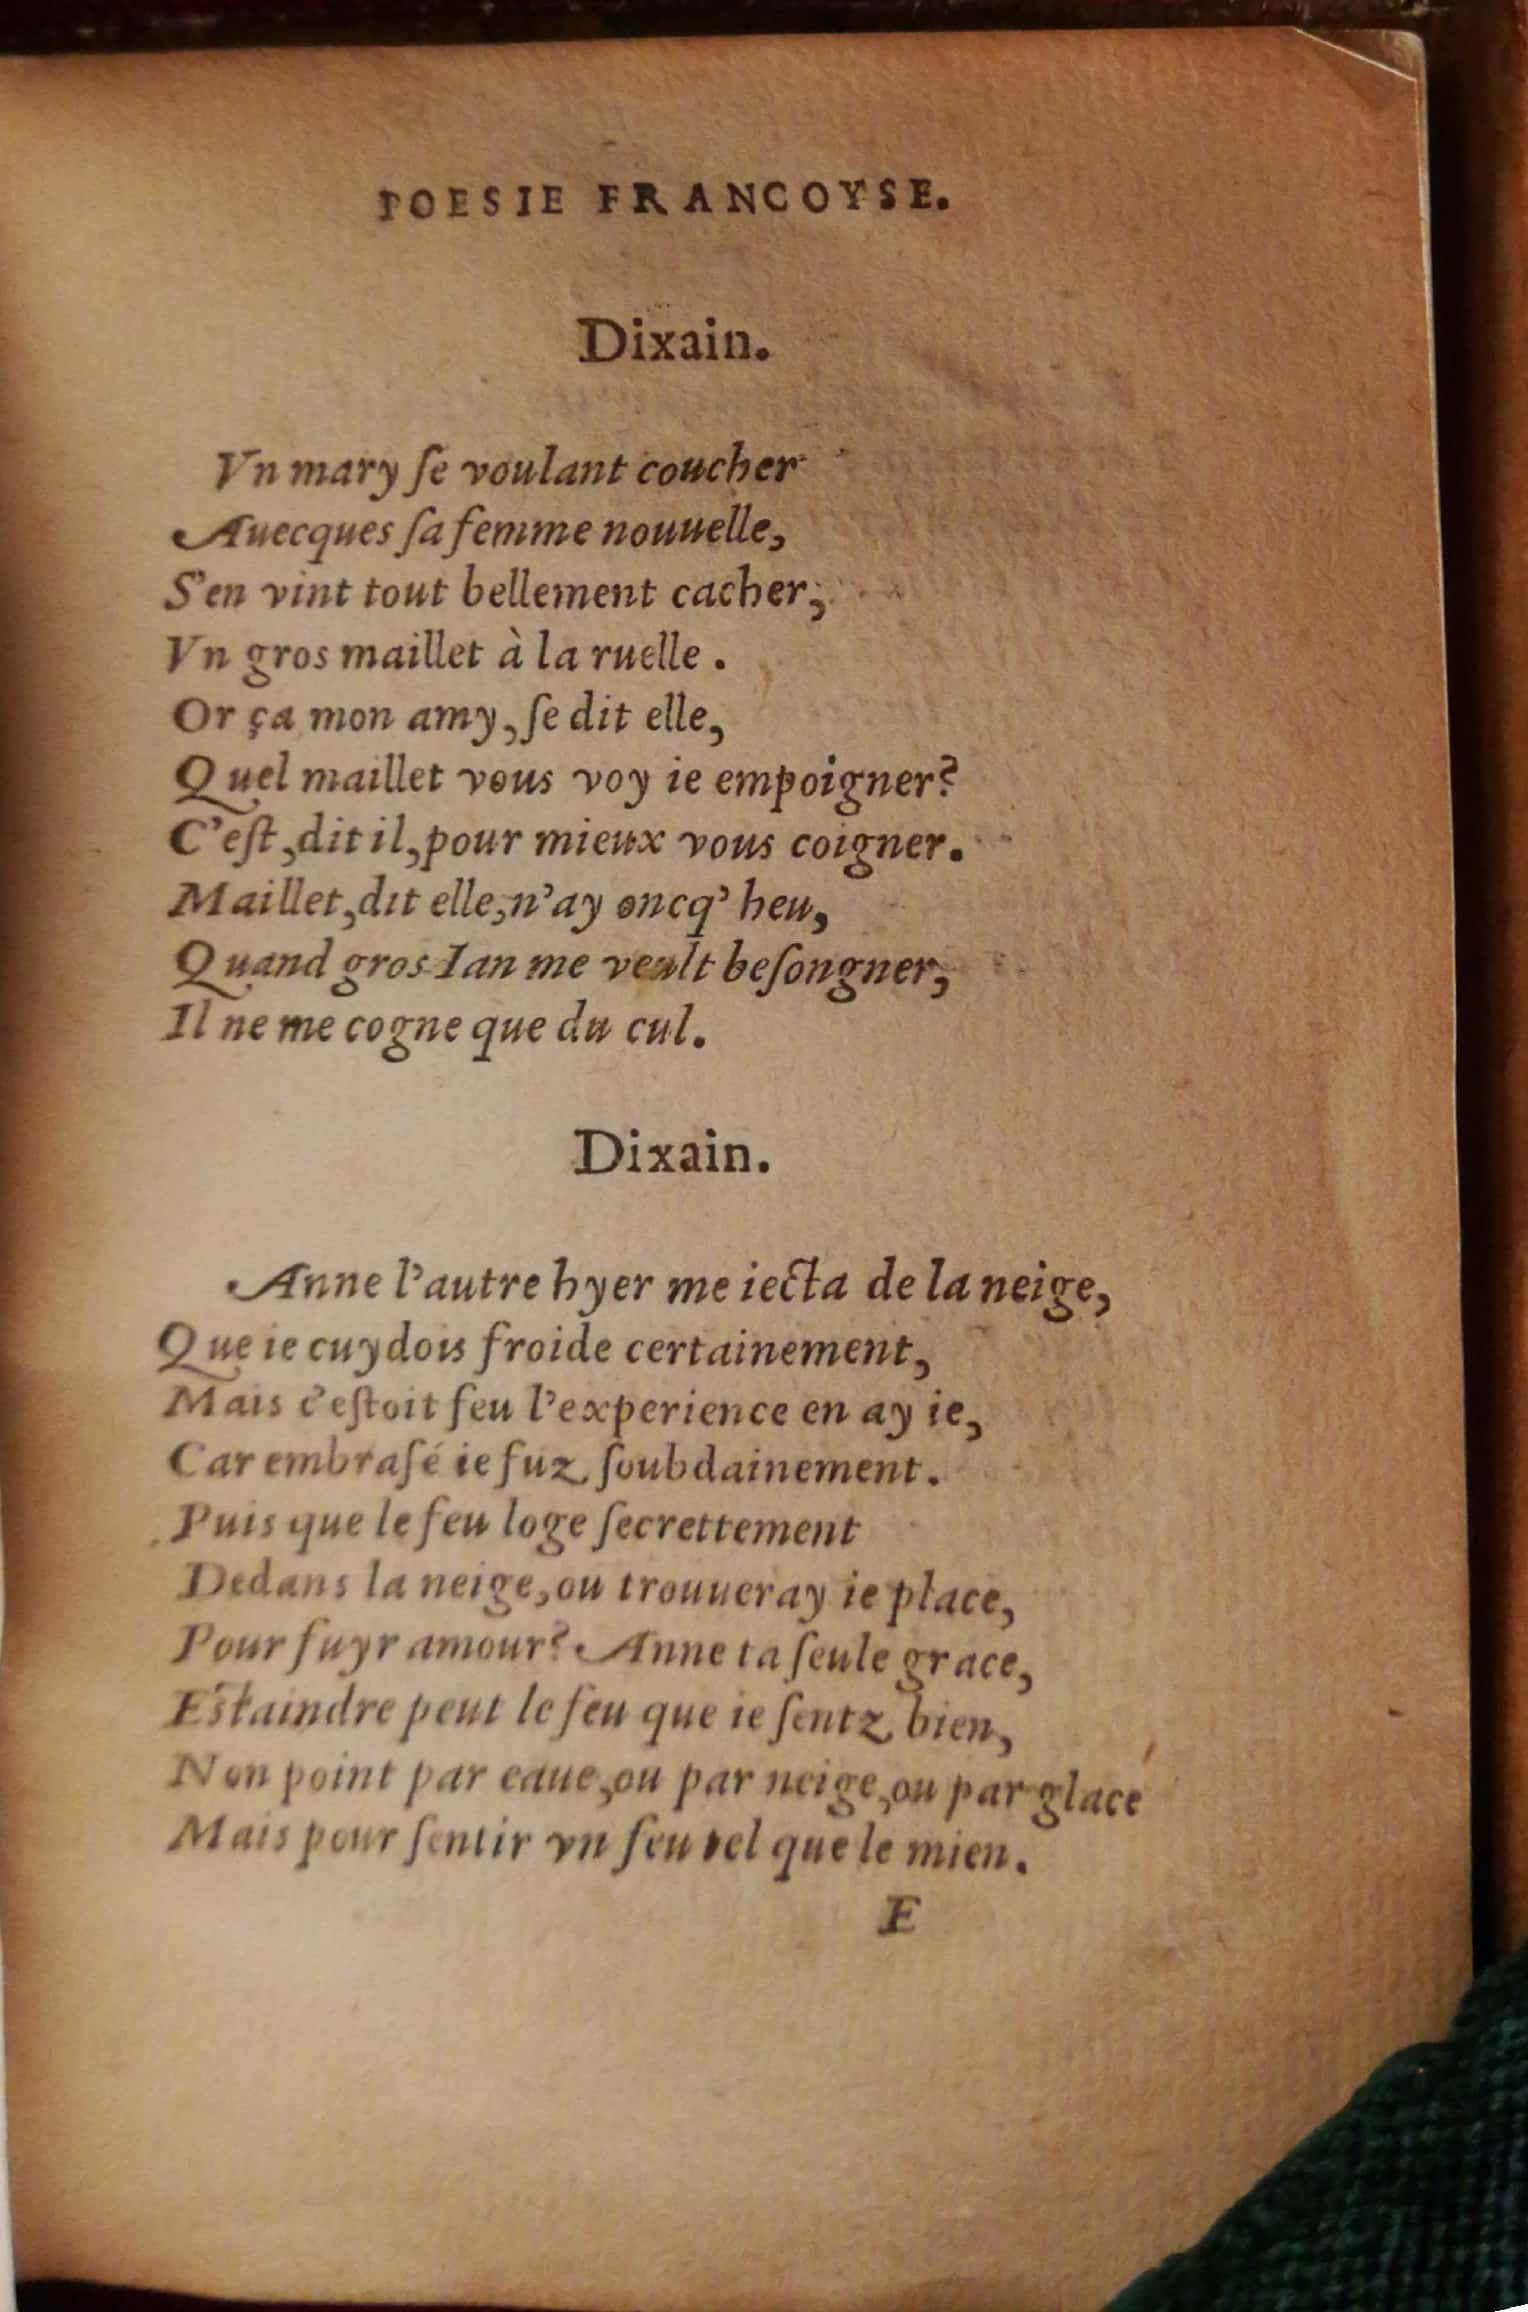 POESIE FRANCOYSE.
Dixain.
Vn mary ſe voulant coucher
Auecques ſa femme nouuelle,
S'en vint tout bellement cacher,
Vn gros maillet à la ruelle.
Or ça mon amy, ſe dit elle,
Quel maillet vous voy ie empoigner?
C'eſt, dit il, pour mieux vous coigner.
Maillet, dit elle, n'ay oncq' heu,
Quand gros Ian me veult beſongner,
Il ne me cogne que du cul.
Dixain.
Anne l'autre hyer me iecta de la neige,
Que ie cuydois froide certainement,
Mais c'eſtoit feu l'experience en ay ie,
Car embraſé ie fuz ſoubdainement.
Puis que le feu loge ſecrettement
Dedans la neige, ou trouueray ie place,
Pour fuyr amour? Anne ta ſeule grace,
Eſtaindre peut le feu que ie ſentz bien,
Non point par eaue, ou par neige, ou par glace
Mais pour ſentir vn feu tel que le mien.
E